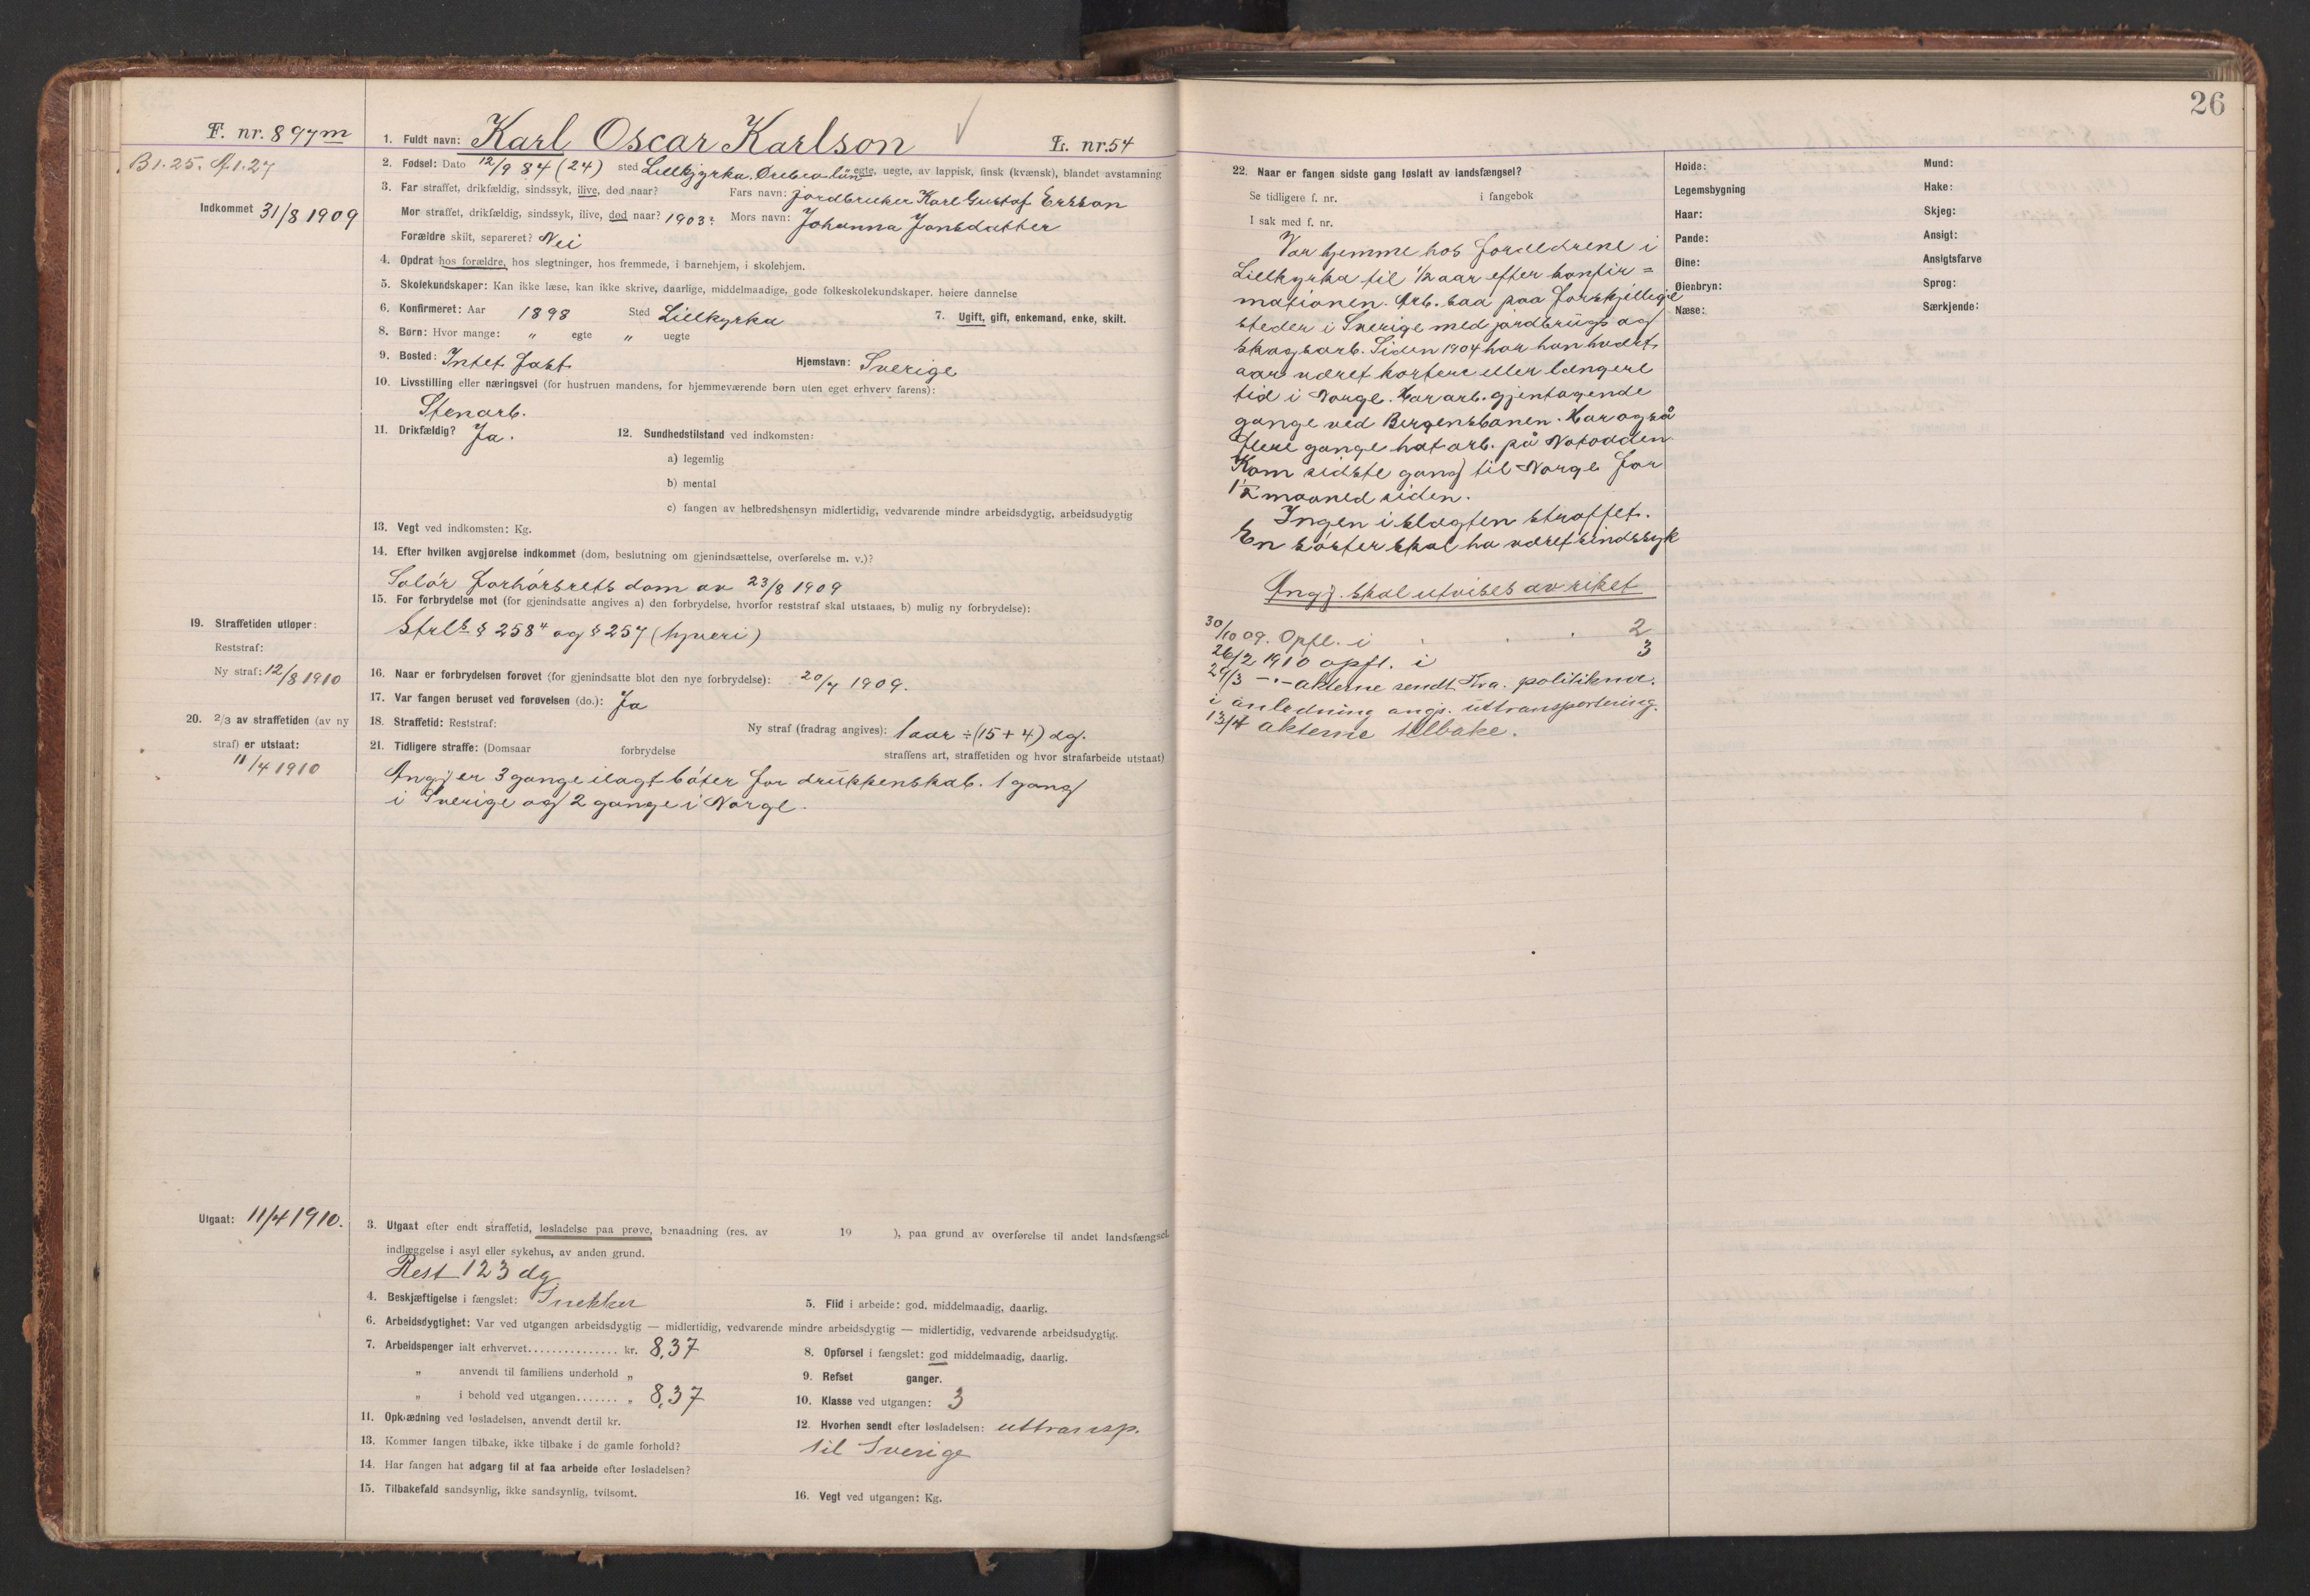 26
F. nr. 897 m
B 1. 25. A 1. 27
Indkommet 31/8 1909
1. Fuldt navn: Karl Oscar Karlson Fr. nr. 54
2. Fødsel: Dato 12/9 84 (24) sted Lillkjyrka. Örebro län egte, uegte, av lappisk, finsk (kvænsk), blandet avstamning
3. Far straffet, drikfældig, sindssyk, ilive, død naar? Fars navn: Jordbruker Karl Gustaf Ersson
Mor straffet, drikfældig, sindssyk, ilive, død naar? 1903: Mors navn: Johanna Jonsdatter
Forældre skilt, separeret? Nei
4. Opdrat hos forældre, hos slegtninger, hos fremmede, i barnehjem, i skolehjem.
5. Skolekundskaper: Kan ikke læse, kan ikke skrive, daarlige, middelmaadige, gode folkeskolekundskaper. høiere dannelse
6. Konfirmeret: Aar 1898 Sted Lillkyrka 7. Ugift, gift, enkemand, enke, skilt.
8. Børn: Hvor mange: „ egte „ uegte
9. Bosted: Intet fast Hjemstavn: Sverige
10. Livsstilling eller næringsvei (for hustruen mandens, for hjemmeværende børn uten eget erhverv farens):
Stenarb.
11. Drikfældig? Ja. 12. Sundhedstilstand ved indkomsten:
a) legemlig
b) mental
c) fangen av helbredshensyn midlertidig, vedvarende mindre arbeidsdygtig, arbeidsudygtig
13. Vegt ved indkomsten: Kg.
14. Efter hvilken avgjørelse indkommet (dom, beslutning om gjenindsættelse, overførelse m. v.)?
Solör forhörsrets dom av 23/8 1909
15. For forbrydelse mot (for gjenindsatte angives a) den forbrydelse, hvorfor reststraf skal utstaaes, b) mulig ny forbrydelse):
Strls § 258⁴ og § 257 (tyveri)
19. Straffetiden utløper:
Reststraf:
Ny straf: 12/8 1910
16. Naar er forbrydelsen forøvet (for gjenindsatte blot den nye forbrydelse): 20/7 1909.
17. Var fangen beruset ved forøvelsen (do.): Ja
20. 2/3 av straffetiden (av ny
straf) er utstaat:
11/4 1910
18. Straffetid: Reststraf: Ny straf (fradrag angives): 1 aar ÷ (15 + 4) dg.
21. Tidligere straffe: (Domsaar forbrydelse straffens art, straffetiden og hvor strafarbeide utstaat)
Angj er 3 gange ilagt böter for drukkenskab. 1 gang
i Sverige og 2 gange i Norge.
Utgaat: 11/4 1910.
3. Utgaat efter endt straffetid, løsladelse paa prøve, benaadning (res. av 19 ), paa grund av overførelse til andet landsfængsel,
indlæggelse i asyl eller sykehus, av anden grund.
Rest 123 dg
4. Beskjæftigelse i fængslet: Snekker 5. Flid i arbeide: god, middelmaadig, daarlig.
6. Arbeidsdygtighet: Var ved utgangen arbeidsdygtig — midlertidig, vedvarende mindre arbeidsdygtig — midlertidig, vedvarende arbeidsudygtig.
7. Arbeidspenger ialt erhvervet............... kr. 8,37 8. Opførsel i fængslet: god middelmaadig, daarlig.
„ anvendt til familiens underhold „ 9. Refset ganger.
„ i behold ved utgangen....... „ 8,37 10. Klasse ved utgangen: 3
11. Opklædning ved løsladelsen, anvendt dertil kr. 12. Hvorhen sendt efter løsladelsen: uttransp.
13. Kommer fangen tilbake, ikke tilbake i de gamle forhold? til Sverige
14. Har fangen hat adgang til at faa arbeide efter løsladelsen?
15. Tilbakefald sandsynlig, ikke sandsynlig, tvilsomt. 16. Vegt ved utgangen: Kg.
22. Naar er fangen sidste gang løslatt av landsfængsel?
Se tidligere f. nr. i fangebok
I sak med f. nr.
Var hjemme hos foreldrene i
Lillkyrka til 1/2 aar efter konfir=
mationen. Arb. saa paa forskjellige
steder i Sverige med jordbrugs og
skogsarb. Siden 1904 har han hvert
aar været kortere eller længere
tid i Norge. Har arb. gjentagende
gange ved Bergensbanen. Har også
flere gange hat arb. på Notodden
Kom sidste gang til Norge for
1 1/2 maaned siden.
Ingen i slægten straffet.
En söster skal ha været sindssyk
Angj. skal utvises av riket
30/10 09. Opfl. i . . . 2
26/2 1910 opfl. i 3
29/3 -"- akterne sendt Kra. politikmr.
i anledning angs. uttransportering.
13/4 akterne tilbake.
Høide:
Legemsbygning
Haar:
Pande:
Øine:
Øienbryn:
Næse:
Mund:
Hake:
Skjeg:
Ansigt:
Ansigtsfarve
Sprog:
Særkjende: